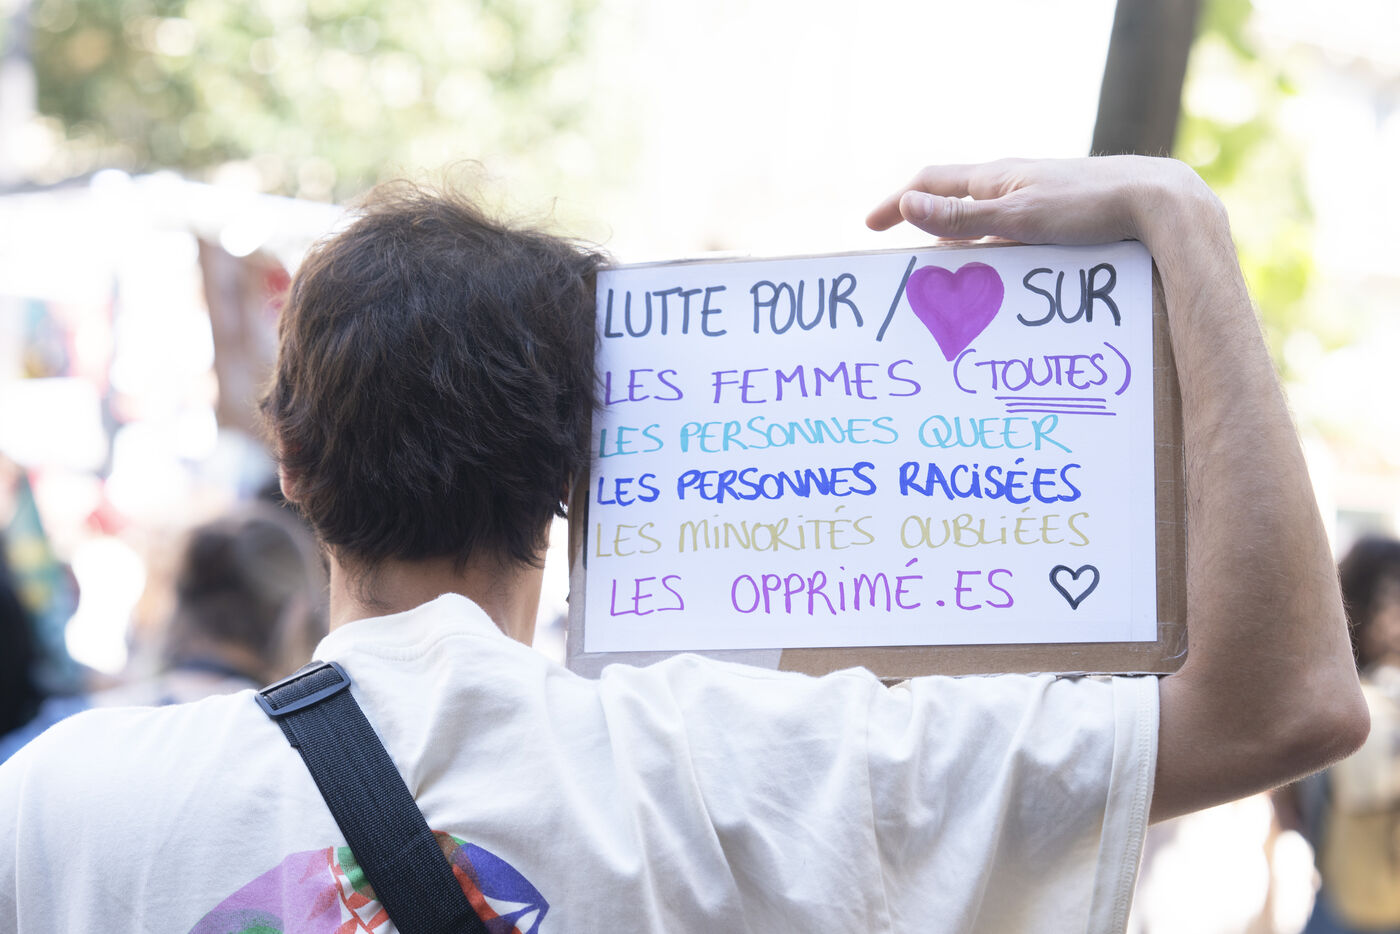 LUTTE POUR / 💜 SUR
LES FEMMES (TOUTES)
LES PERSONNES QUEER
LES PERSONNES RACISÉES
LES MINORITÉS OUBLIÉES
LES OPPRIMÉ.ES ♡